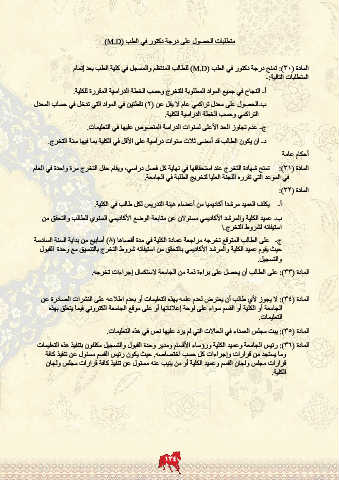 متطلبات الحصول على درجة دكتور في الطب (M.D)
المادة (٣٠): تمنح درجة دكتور في الطب (M.D) للطالب المنتظم والمسجل في كلية الطب بعد إتمام
المتطلبات التالية:-
أ- النجاح في جميع المواد المطلوبة للتخرج وحسب الخطة الدراسية المقررة للكلية.
ب- الحصول على معدل تراكمي عام لا يقل عن (٢) نقطتين في المواد التي تدخل في حساب المعدل
التراكمي وحسب الخطة الدراسية للكلية.
ج- عدم تجاوز الحد الأعلى لسنوات الدراسة المنصوص عليها في التعليمات.
د- أن يكون الطالب قد أمضى ثلاث سنوات دراسية على الأقل في الكلية بما فيها سنة التخرج.
أحكام عامة
المادة (٣١): تمنح شهادة التخرج عند استحقاقها في نهاية كل فصل دراسي، ويقام حفل التخرج مرة واحدة في العام
في الموعد الذي تقرره اللجنة العليا لتخريج الطلبة في الجامعة.
المادة (٣٢):
أ- يكلف العميد مرشدا أكاديميا من أعضاء هيئة التدريس لكل طالب في الكلية.
ب- عميد الكلية والمرشد الأكاديمي مسئولان عن متابعة الوضع الأكاديمي السنوي للطالب والتحقق من
استيفائه لشروط التخرج.
ج- على الطالب المتوقع تخرجه مراجعة عمادة الكلية في مدة أقصاها (٨) أسابيع من بداية السنة السادسة
حيث يقوم عميد الكلية والمرشد الأكاديمي بالتحقق من استيفائه شروط التخرج بالتنسيق مع وحدة القبول
والتسجيل.
المادة (٣٣): على الطالب أن يحصل على براءة ذمة من الجامعة لاستكمال إجراءات تخرجه.
المادة (٣٤): لا يجوز لأي طالب أن يعترض لعدم علمه بهذه التعليمات أو بعدم اطلاعه على النشرات الصادرة عن
الجامعة أو الكلية أو القسم سواء على لوحة إعلاناتها أو على موقع الجامعة الكتروني فيما يتعلق بهذه
التعليمات.
المادة (٣٥): يبت مجلس العمداء في الحالات التي لم يرد عليها نص في هذه التعليمات.
المادة (٣٦): رئيس الجامعة وعميد الكلية ورؤساء الأقسام ومدير وحدة القبول والتسجيل مكلفون بتنفيذ هذه التعليمات
وما يستجد من قرارات وإجراءات كل حسب اختصاصه، حيث يكون رئيس القسم مسئول عن تنفيذ كافة
قرارات مجلس ولجان القسم وعميد الكلية أو من ينيب عنه مسئول عن تنفيذ كافة قرارات مجلس ولجان
الكلية.